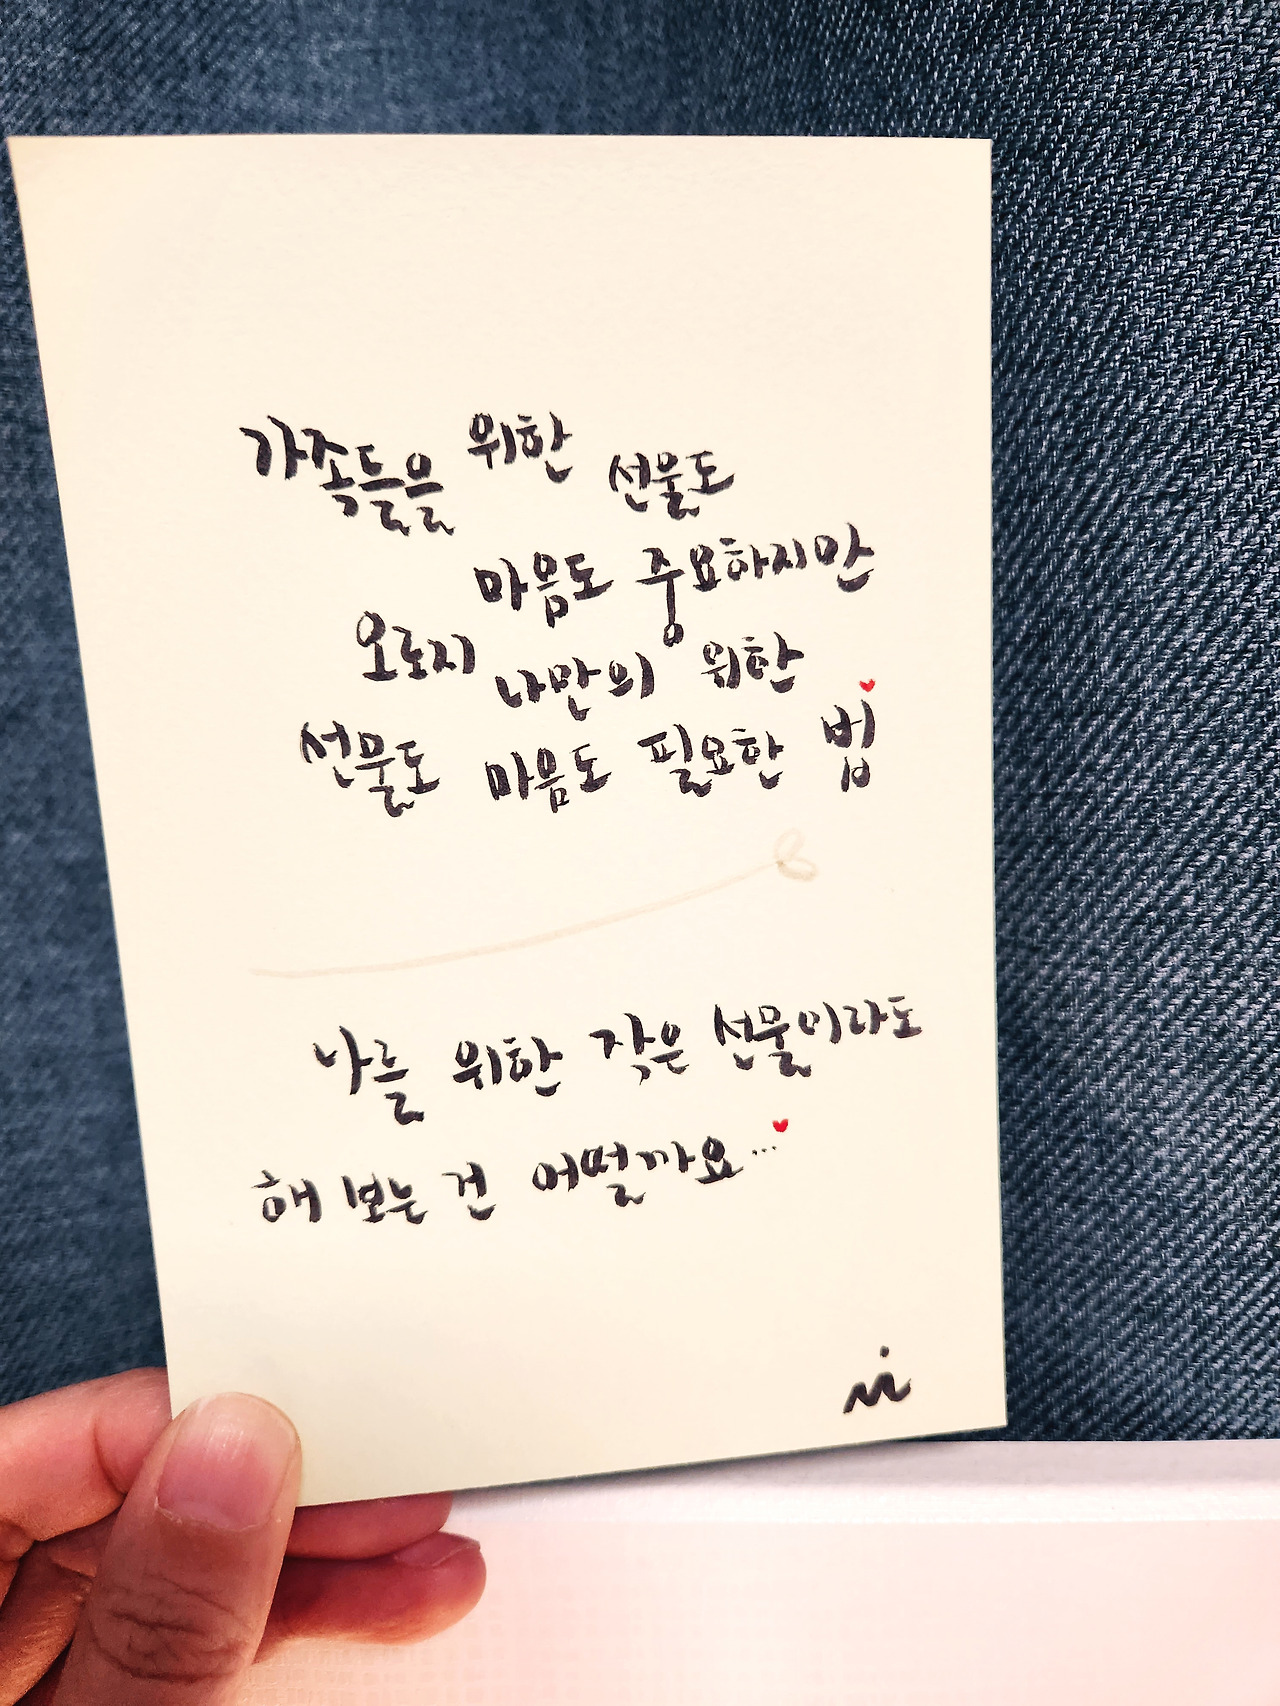 가족들을 위한 선물도
마음도 중요하지만
오로지 나만의 위한
선물도 마음도 필요한 법
나를 위한 작은 선물이라도
해 보는 건 어떨까요...